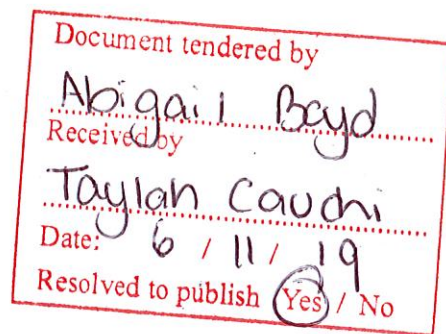 Document tendered by
Abigail Boyd
Received by
Taylah Cauchi
Date: 6 / 11 / 19
Resolved to publish Yes / No